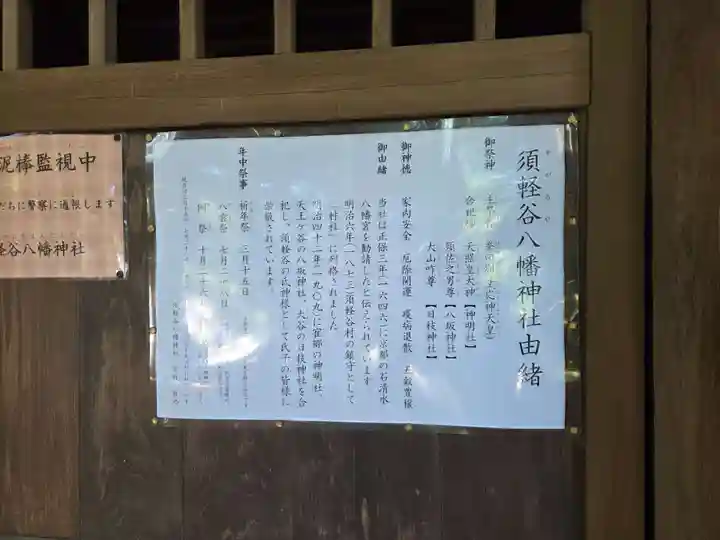 須軽谷八幡神社由緒
すがるや
御祭神
合祀
天照皇大神【神明社】
須佐之男尊【八坂神社】
大山咋尊【日枝神社】
御神徳 家内安全 厄除開運 疫病退散 五穀豊穣
御由緒 当社は正保三年(一六四六)に京都の石清水
八幡宮を勧請したと伝えられています
明治六年(一八七三)須軽谷村の鎮守として
「村社」に列格されました
明治四十二年(一九〇九)に宿郷の神明社、
天王ヶ谷の八坂神社、大谷の日枝神社を合
祀し、須軽谷の氏神様として氏子の皆様に
崇敬されています。
年中祭事 祈年祭 三月十五日
八雲祭 七月二十八日
例祭 十月二十
泥棒監視中
だちに警察に通報します
軽谷八幡神社